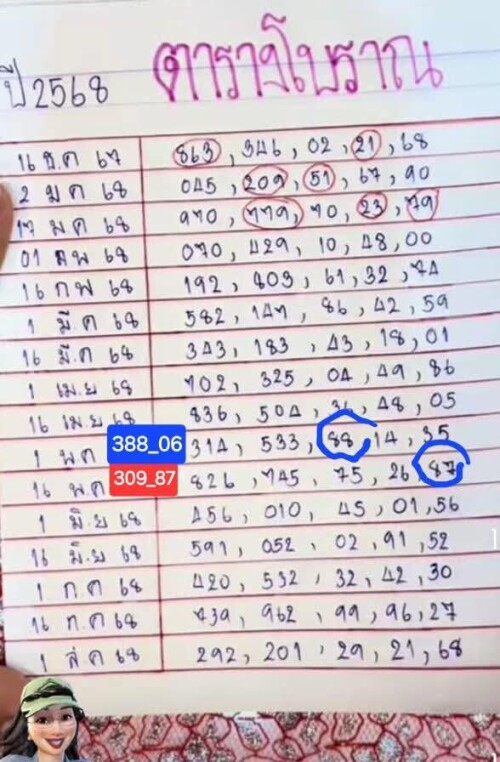 ปี 2568 ตารางโบราณ
16 ธ.ค 67 863, 346, 02, 21, 68
2 ม ค 68 045, 209, 51, 67, 90
17 ม ค 68 970, 779, 70, 23, 79
01 ก พ 68 070, 429, 10, 48, 00
16 ก พ 68 192, 803, 61, 32, 74
1 มี ค 68 582, 147, 86, 42, 59
16 มี.ค 68 343, 183, 43, 18, 01
1 เม.ย 68 702, 325, 04, 49, 86
16 เม.ย 68 836, 504, 48, 05
1 พ.ค 388_06 314, 533, 88, 14, 35
16 พ.ค 309_87 826, 745, 75, 26, 87
1 มิ.ย 68 456, 010, 45, 01, 56
16 มิ.ย 68 591, 052, 02, 91, 52
1 ก.ค 68 420, 532, 32, 42, 30
16 ก.ค 68 739, 962, 99, 96, 27
1 ส.ค 68 292, 201, 29, 21, 68